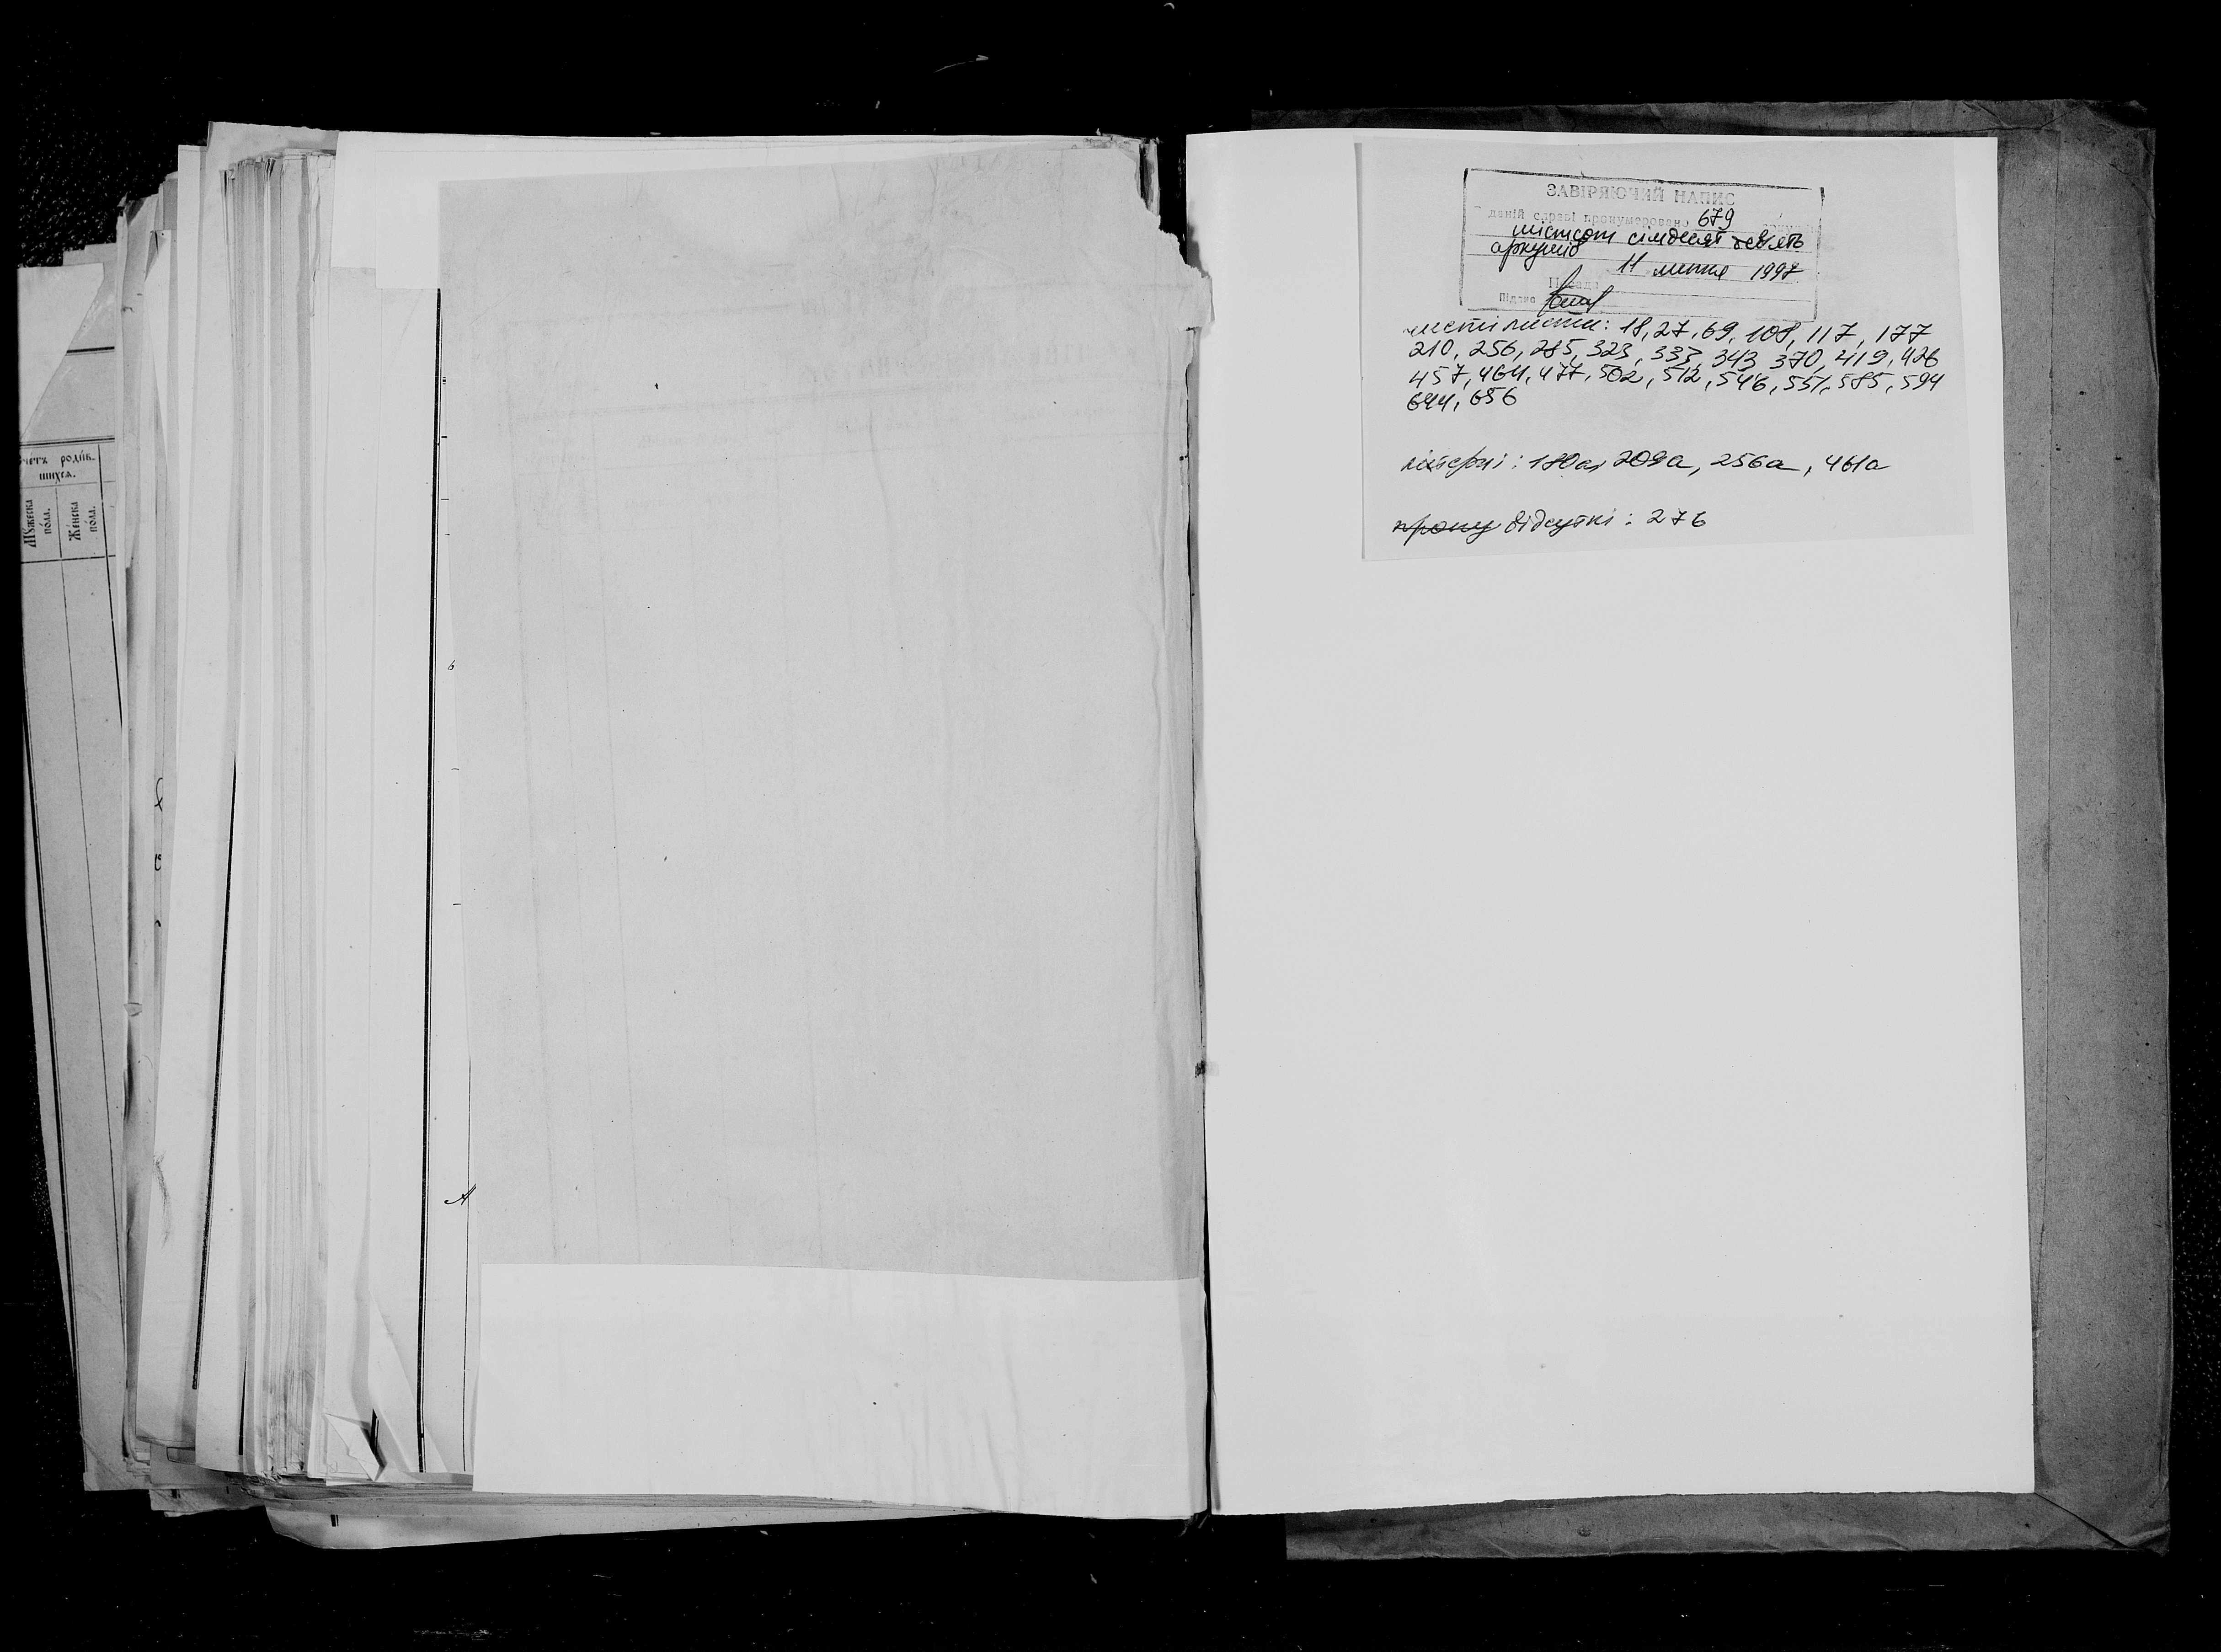 четъ родив-
шихся.
Мужеска
пола.
Женска
пола.
ЗАВІРЯЮЧИЙ НАПИС
даній справі пронумеровано 679
шістсот сімдесят девять
аркушів
11 липня 1997
Посада
Підпис
чисті листи: 18, 27, 69, 108, 117, 177
210, 256, 285, 323, 333, 343, 370, 419, 426
457, 464, 477, 502, 512, 546, 551, 585, 594
644, 656
літерні: 180а, 209а, 256а, 461а
прону відсутні: 276